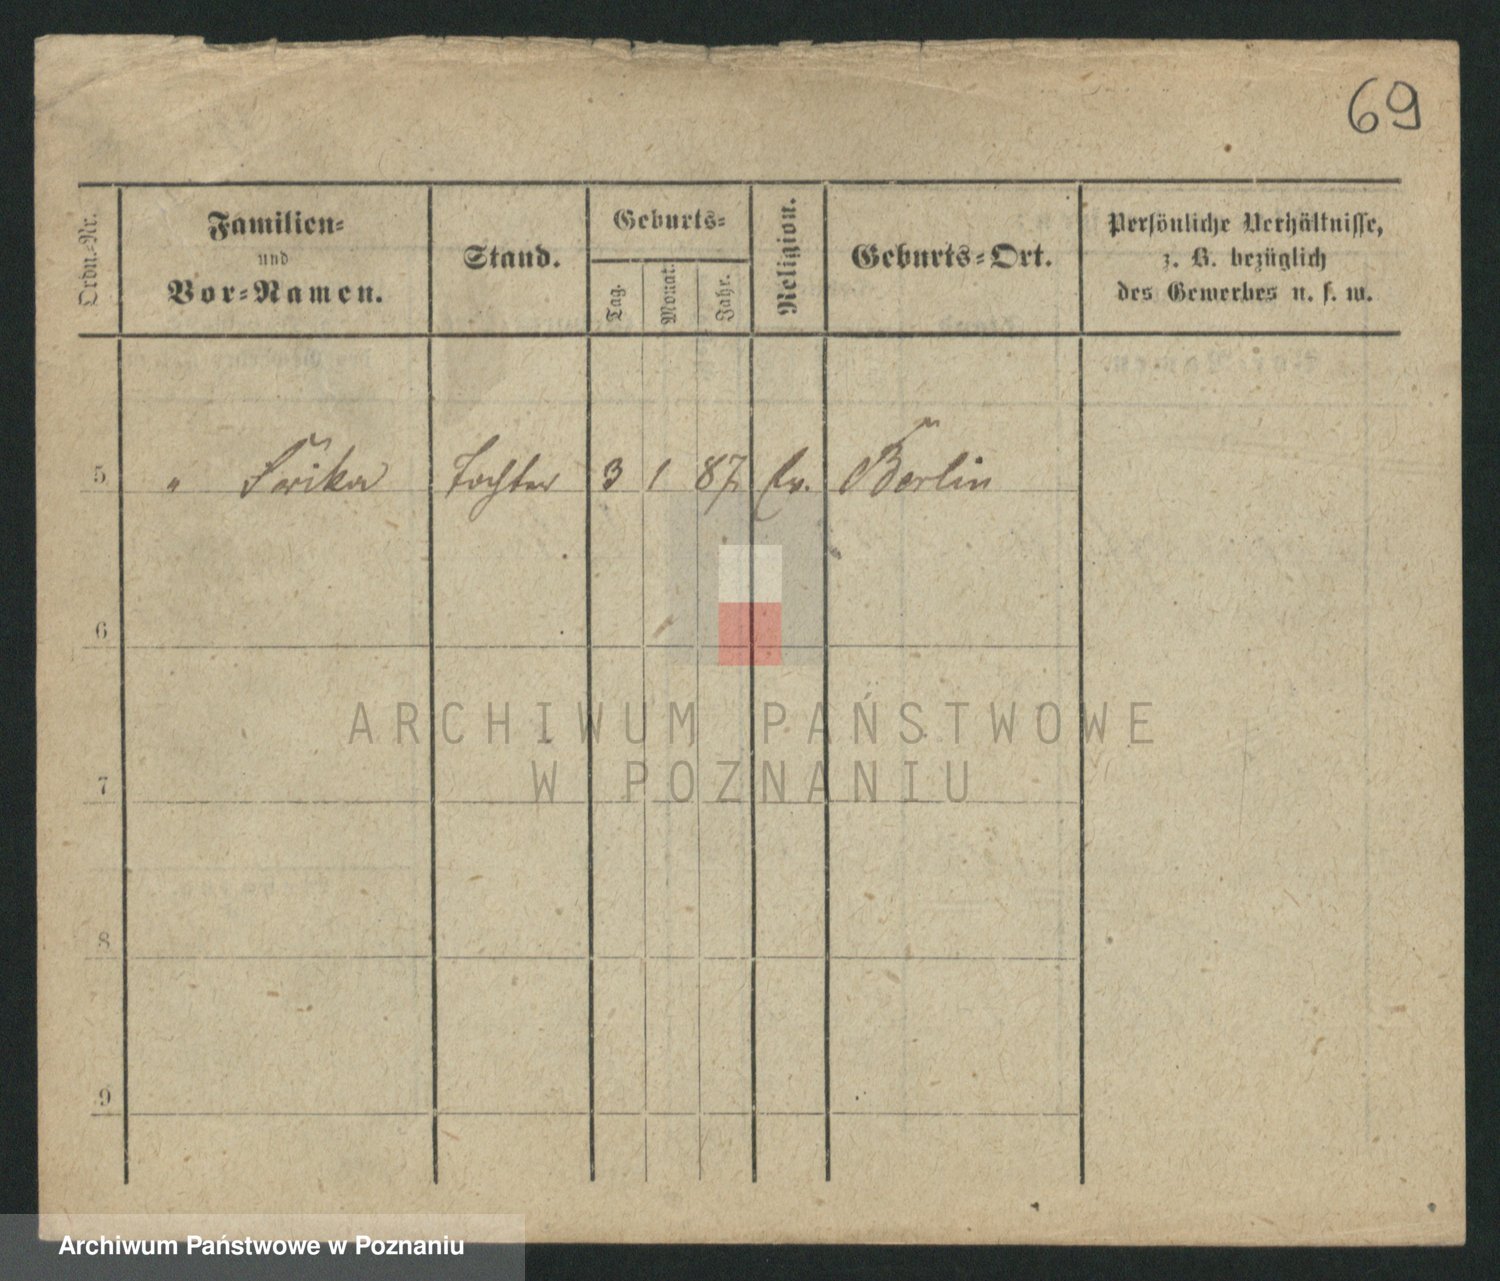 69
Ordn.-Nr.
Familien-
und
Vor-Namen.
Stand.
Geburts-
Tag.
Monat.
Jahr.
Religion.
Geburts-Ort.
Persönliche Verhältnisse,
z. B. bezüglich
des Gewerbes u. s. w.
5 " Erika Tochter 3 1 87 Ev. Berlin
6
7
8
9
ARCHIWUM PAŃSTWOWE
W POZNANIU
Archiwum Państwowe w Poznaniu